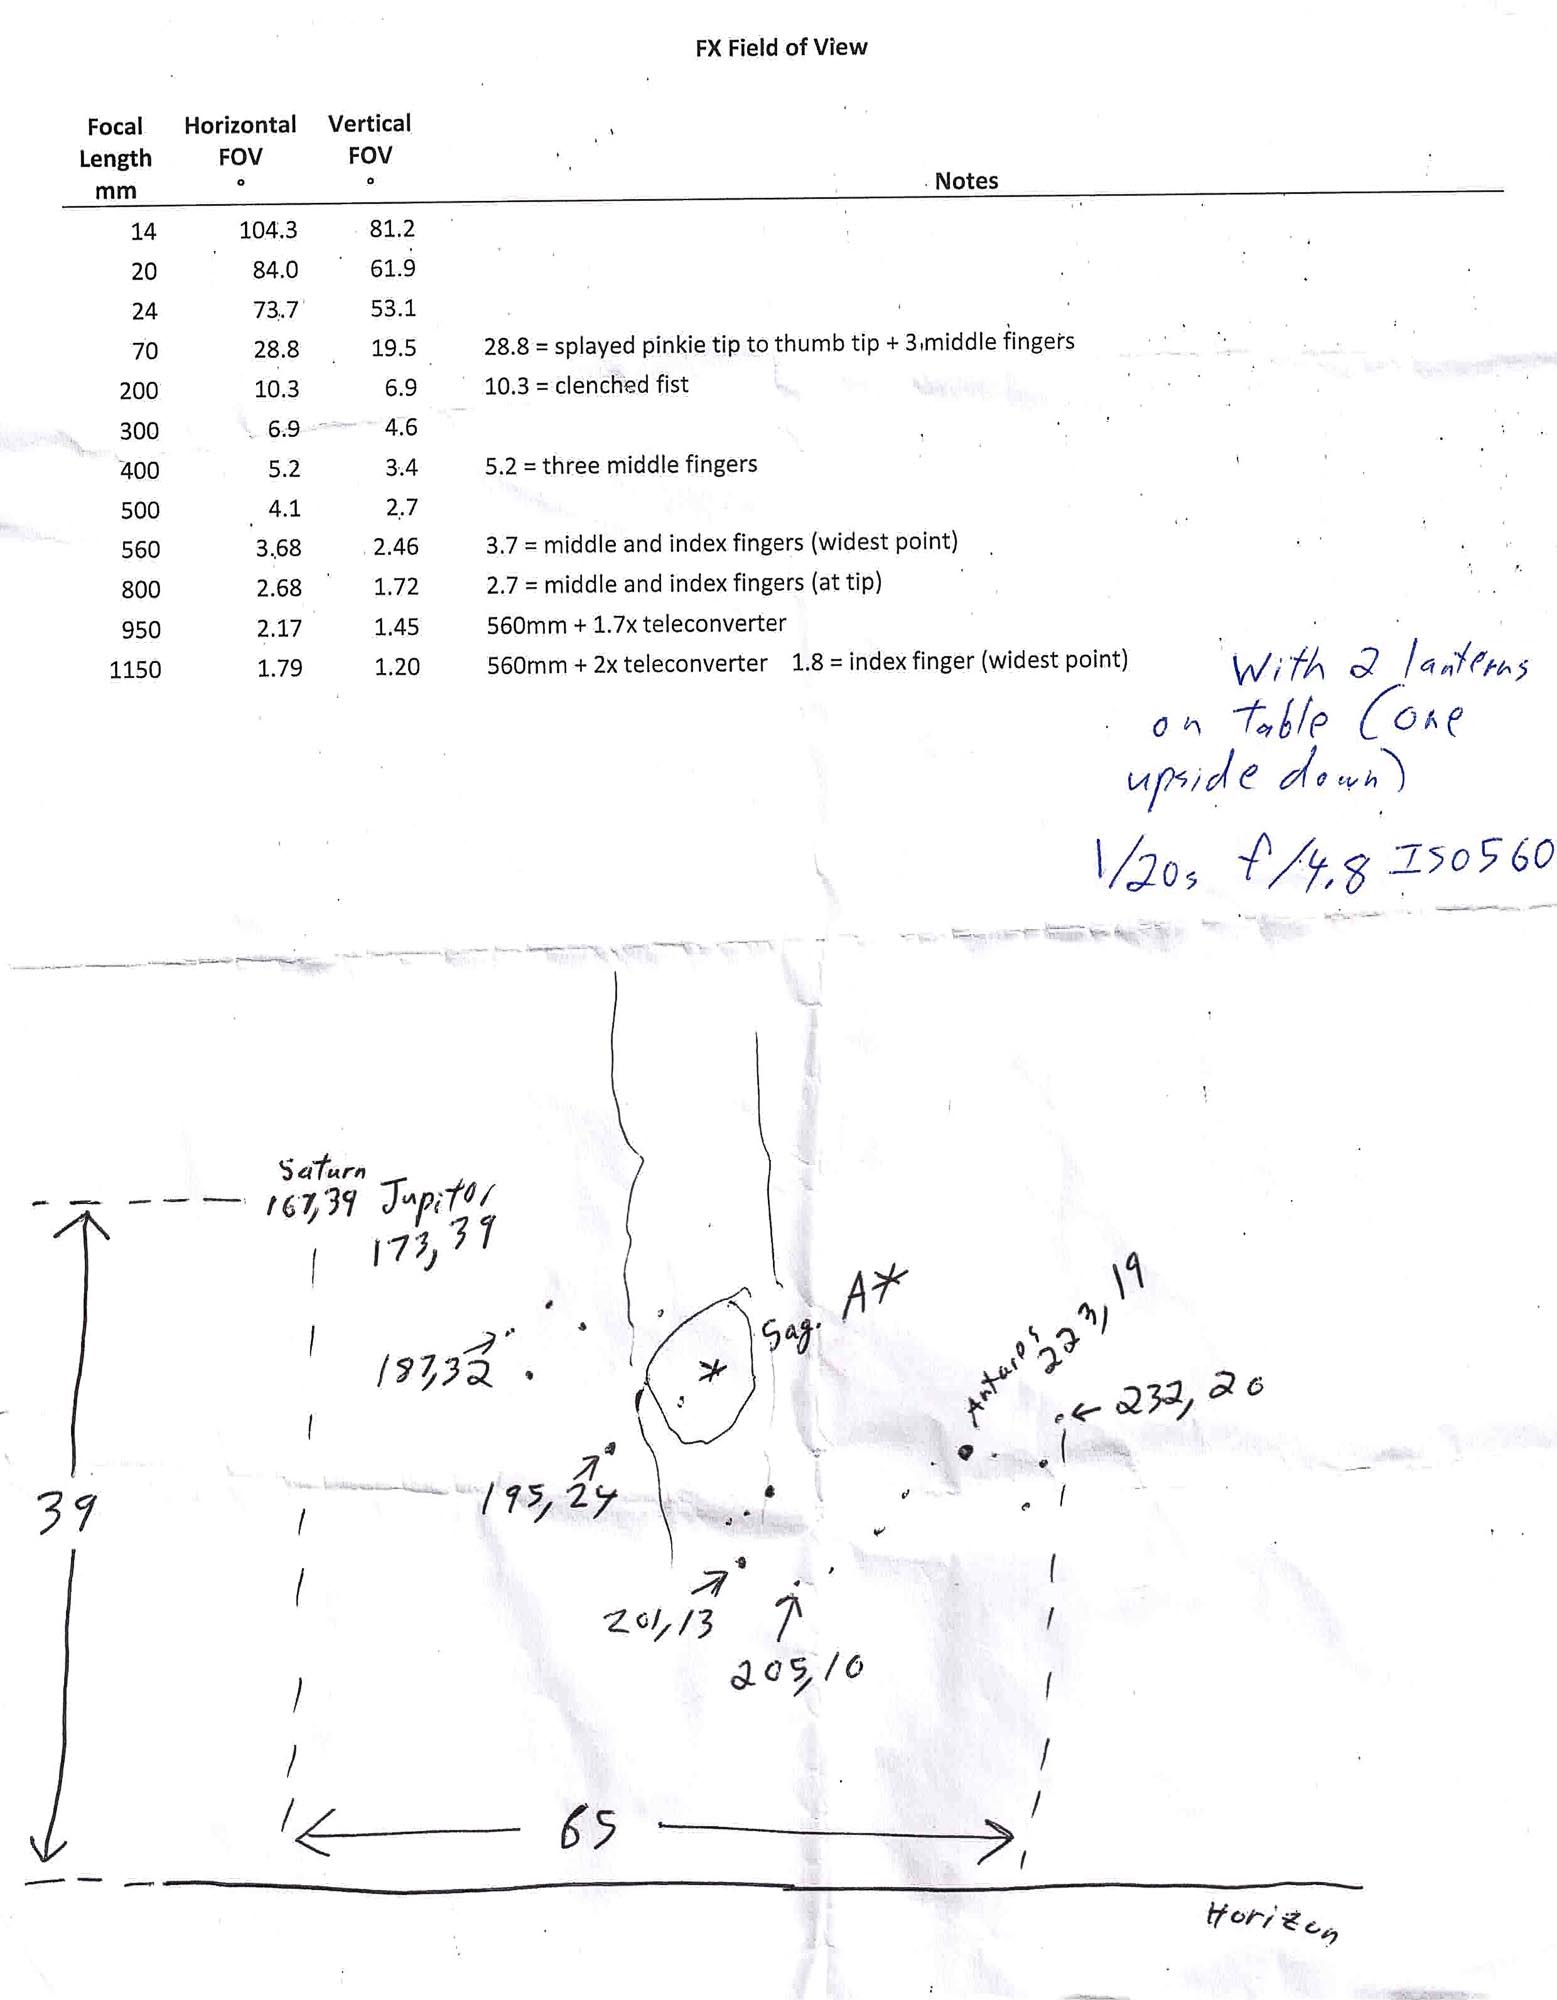 FX Field of View
Focal Horizontal Vertical
Length FOV FOV
mm ° ° Notes
14 104.3 81.2
20 84.0 61.9
24 73.7 53.1
70 28.8 19.5 28.8 = splayed pinkie tip to thumb tip + 3 middle fingers
200 10.3 6.9 10.3 = clenched fist
300 6.9 4.6
400 5.2 3.4 5.2 = three middle fingers
500 4.1 2.7
560 3.68 2.46 3.7 = middle and index fingers (widest point)
800 2.68 1.72 2.7 = middle and index fingers (at tip)
950 2.17 1.45 560mm + 1.7x teleconverter
1150 1.79 1.20 560mm + 2x teleconverter 1.8 = index finger (widest point)
With 2 lanterns
on table (one
upside down)
1/20s f/4.8 ISO560
Saturn
167,39
Jupitor
173,39
Sag. A*
187,32
Antares
223,19
232,20
195,24
39
201,13
205,10
65
Horizon